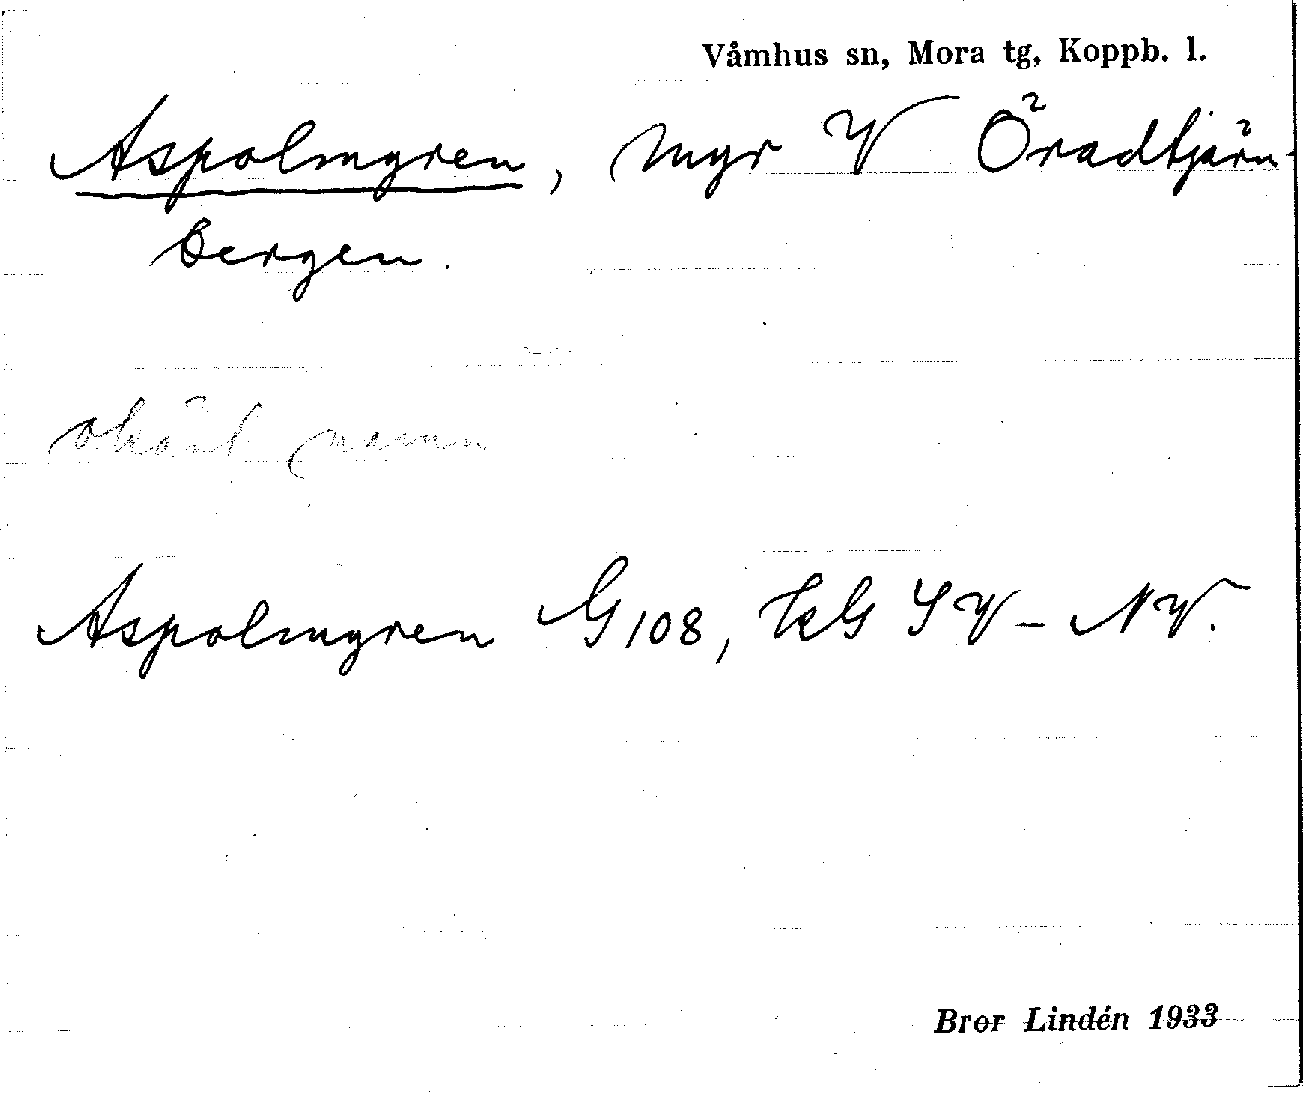 Våmhus sn, Mora tg, Koppb. l.
Aspolmyren, myr V Öradtjärn-
bergen.
okänt namn
Aspolmyren G108, kbl SV–NV.
Bror Lindén 1933